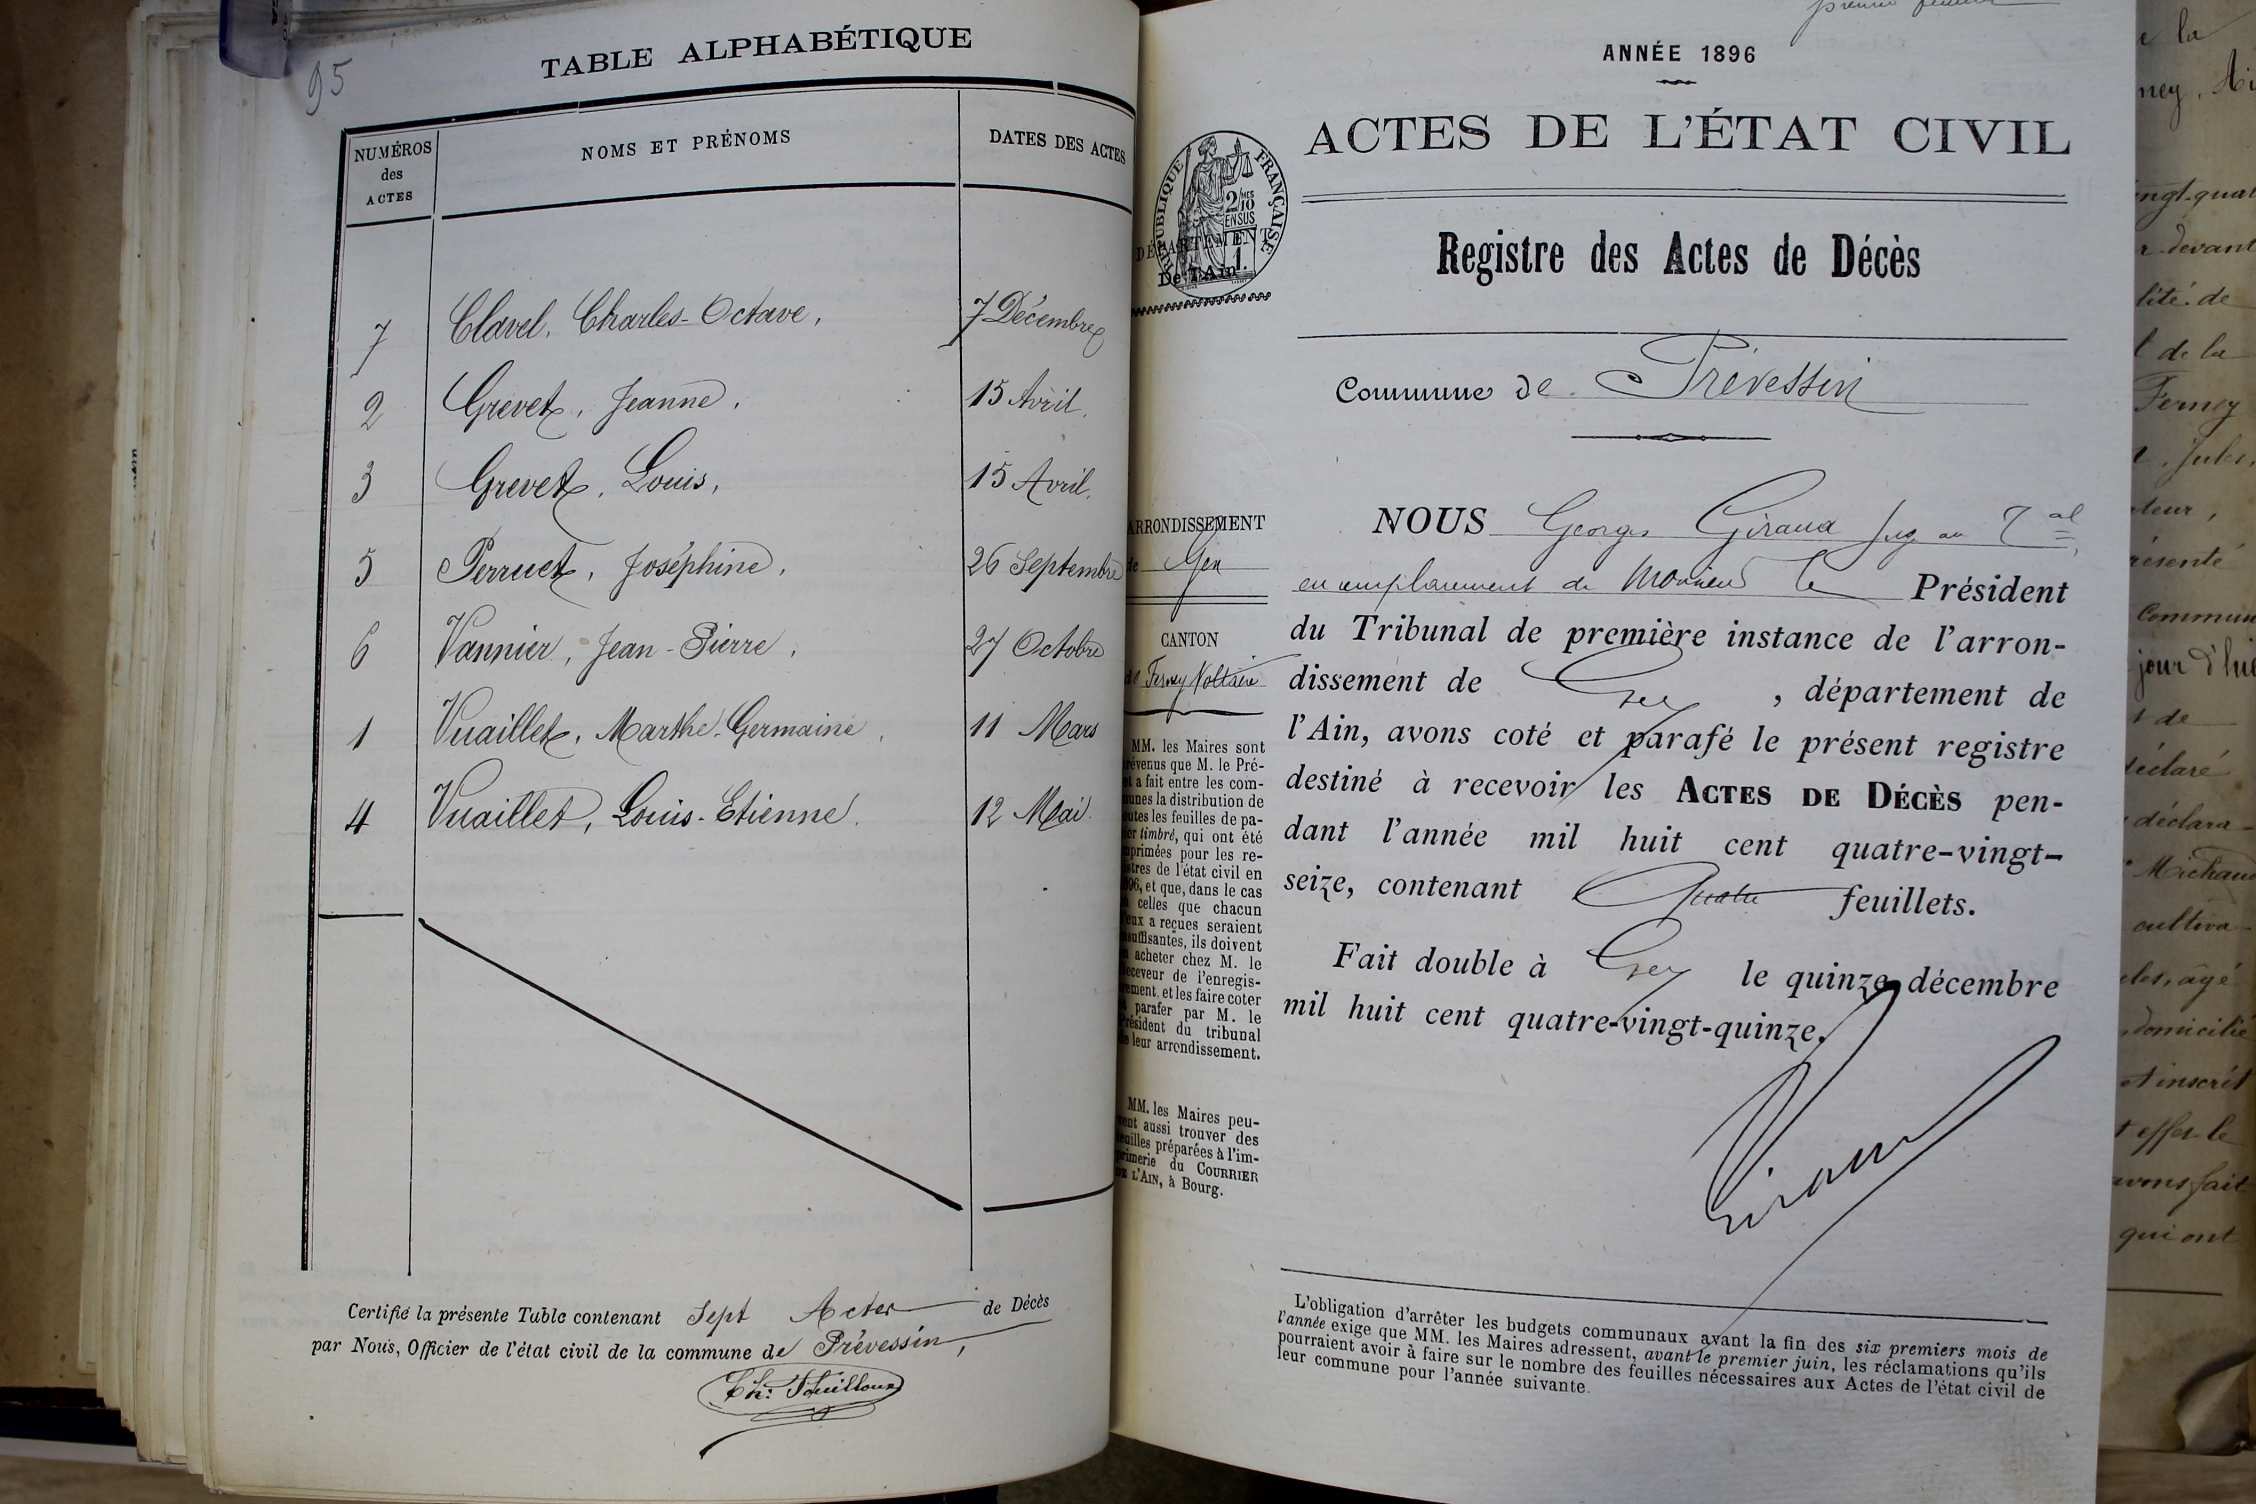 95
TABLE ALPHABÉTIQUE
NUMÉROS
des
ACTES
NOMS ET PRÉNOMS
DATES DES ACTES
7 Clavel, Charles-Octave, 7 Décembre
2 Grevet, Jeanne, 15 Avril,
3 Grevet, Louis, 15 Avril,
5 Perruet, Joséphine, 26 Septembre
6 Vannier, Jean-Pierre, 27 Octobre
1 Vuaillet, Marthe-Germaine, 11 Mars
4 Vuaillet, Louis-Etienne. 12 Mai.
Certifié la présente Table contenant Sept Actes de Décès
par Nous, Officier de l'état civil de la commune de Prévessin,
ANNÉE 1896
ACTES DE L'ÉTAT CIVIL
RÉPUBLIQUE FRANÇAISE
2/10 MES
EN SUS
1.
DÉPARTEMENT
De l'Ain
Registre des Actes de Décès
Commune de Prévessin
ARRONDISSEMENT
de Gex
CANTON
de Ferney Voltaire
MM. les Maires sont
prévenus que M. le Pré-
fet a fait entre les com-
munes la distribution de
toutes les feuilles de pa-
pier timbré, qui ont été
imprimées pour les re-
gistres de l'état civil en
1896, et que, dans le cas
où celles que chacun
d'eux a reçues seraient
insuffisantes, ils doivent
en acheter chez M. le
Receveur de l'enregis-
trement, et les faire coter
et parafer par M. le
Président du tribunal
de leur arrondissement.
MM. les Maires peu-
vent aussi trouver des
feuilles préparées à l'im-
primerie du COURRIER
DE L'AIN, à Bourg.
NOUS Georges Giraud Juge au Tal
en remplacement de Monsieur le Président
du Tribunal de première instance de l'arron-
dissement de Gex, département de
l'Ain, avons coté et parafé le présent registre
destiné à recevoir les ACTES DE DÉCÈS pen-
dant l'année mil huit cent quatre-vingt-
seize, contenant Quatre feuillets.
Fait double à Gex le quinze décembre
mil huit cent quatre-vingt-quinze.
Giraud
L'obligation d'arrêter les budgets communaux avant la fin des six premiers mois de
l'année exige que MM. les Maires adressent, avant le premier juin, les réclamations qu'ils
pourraient avoir à faire sur le nombre des feuilles nécessaires aux Actes de l'état civil de
leur commune pour l'année suivante.
la
devant
de
de la
Ferney
Jules,
Commune
jour d'hui
de
déclaré
déclara-
Michaud
cultiva-
âgé
domicilié
et inscrit
effet le
avons fait
qui ont